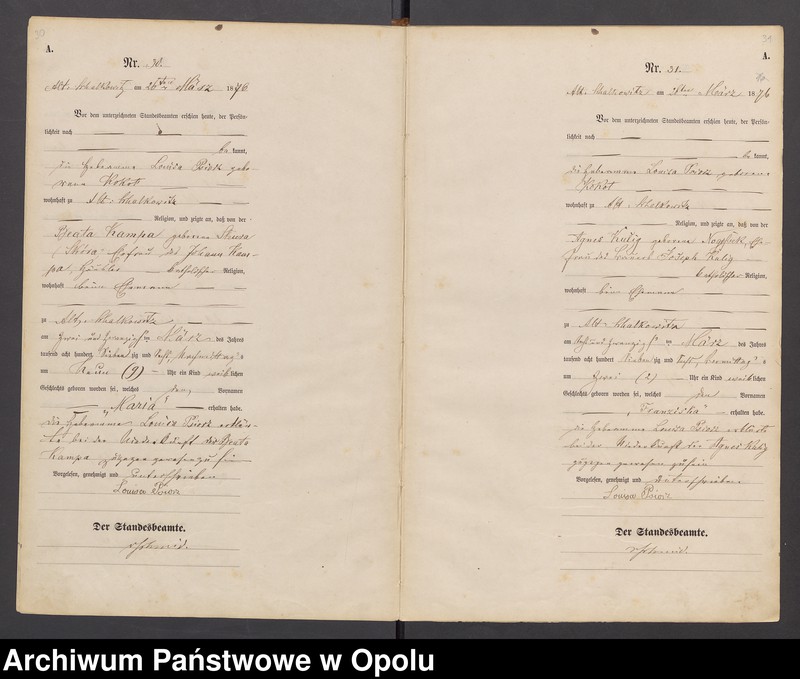 30
A.
Nr. 30.
Alt-Schalkowitz am 26ten März 1876
Vor dem unterzeichneten Standesbeamten erschien heute, der Persön-
lichkeit nach
be kannt,
die Hebamme Louisa Psiorz gebo-
rene Kokot
wohnhaft zu Alt-Schalkowitz
Religion, und zeigte an, daß von der
Beata Kampa geborenen
Ehefrau des Johann Kam-
pa, katholischer Religion,
wohnhaft beim Ehemann
zu Alt-Schalkowitz
am zwei und zwanzigsten März des Jahres
tausend acht hundert sieben zig und sechs, Nachmittags
um Neun (9) Uhr ein Kind weiblichen
Geschlechts geboren worden sei, welches den Vornamen
„Maria“ erhalten habe.
Die Hebamme Louisa Psiorz erklär-
te bei der Niederkunft der Beata
Kampa zugegen gewesen zu sein
Vorgelesen, genehmigt und unterschrieben
Louisa Psiorz
Der Standesbeamte.
31
A.
Nr. 31.
Alt-Schalkowitz am März 1876
Vor dem unterzeichneten Standesbeamten erschien heute, der Persön-
lichkeit nach
be kannt,
die Hebamme Louisa Psiorz geborene
Kokot
wohnhaft zu Alt-Schalkowitz
Religion, und zeigte an, daß von der
Agnes Kulig geborenen Ehe-
frau des Bauers Joseph Kulig
katholischer Religion,
wohnhaft beim Ehemann
zu Alt-Schalkowitz
am sechs und zwanzigsten März des Jahres
tausend acht hundert sieben zig und sechs, Vormittags
um zwei (2) Uhr ein Kind weiblichen
Geschlechts geboren worden sei, welches den Vornamen
„Franziska“ erhalten habe.
Die Hebamme Louisa Psiorz erklärte
bei der Niederkunft der Agnes Kulig
zugegen gewesen zu sein
Vorgelesen, genehmigt und unterschrieben
Louisa Psiorz
Der Standesbeamte.
Archiwum Państwowe w Opolu